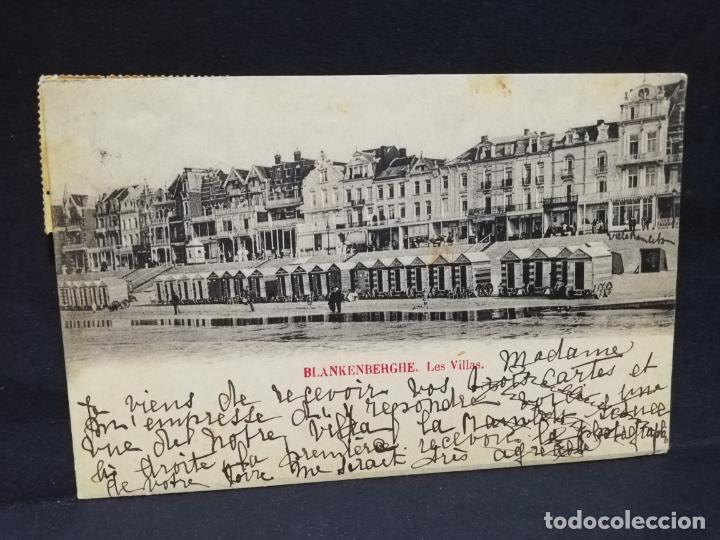 BLANKENBERGHE. Les Villas.
Madame
Je viens de recevoir vos trois cartes et
m'empresse d'y répondre voilà une
vue de notre villa, la
à droite, la première recevoir la
de votre me serait très agréable
todocoleccion
todocoleccion.net